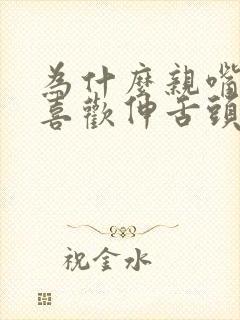 為什麼親嘴
喜歡伸舌頭
祝金水